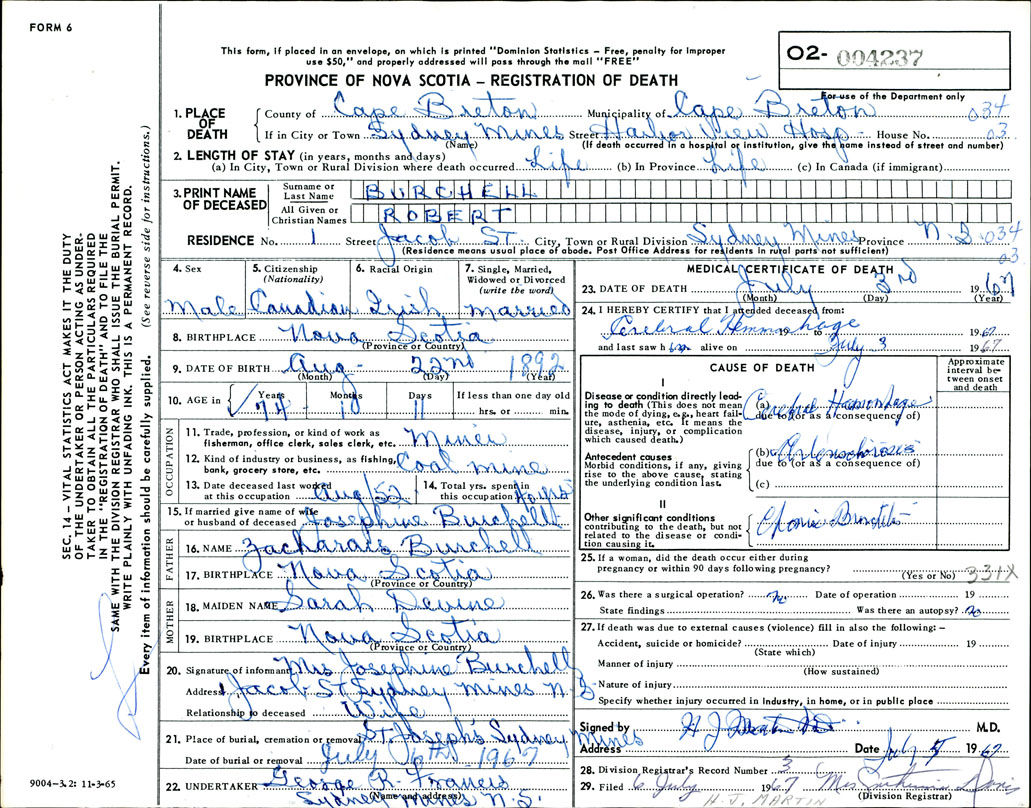 FORM 6
This form, if placed in an envelope, on which is printed "Dominion Statistics – Free, penalty for improper
use $50," and properly addressed will pass through the mail "FREE"
O2- 004237
PROVINCE OF NOVA SCOTIA – REGISTRATION OF DEATH
For use of the Department only
1. PLACE OF DEATH
County of Cape Breton Municipality of Cape Breton 034
If in City or Town Sydney Mines Street Harbor View Hosp - House No. 03
(Name) (If death occurred in a hospital or institution, give the name instead of street and number)
2. LENGTH OF STAY (in years, months and days)
(a) In City, Town or Rural Division where death occurred Life (b) In Province Life (c) In Canada (if immigrant)
3. PRINT NAME OF DECEASED
Surname or Last Name BURCHELL
All Given or Christian Names ROBERT
RESIDENCE No. 1 Street Jacob ST. City, Town or Rural Division Sydney Mines Province N.S. 034
(Residence means usual place of abode. Post Office Address for residents in rural parts not sufficient) 03
4. Sex Male
5. Citizenship (Nationality) Canadian
6. Racial Origin Irish
7. Single, Married, Widowed or Divorced (write the word) married
8. BIRTHPLACE Nova Scotia
(Province or Country)
9. DATE OF BIRTH Aug- 22nd 1892
(Month) (Day) (Year)
10. AGE in Years Months Days If less than one day old
74 11 hrs. or min.
OCCUPATION
11. Trade, profession, or kind of work as fisherman, office clerk, sales clerk, etc. Miner
12. Kind of industry or business, as fishing, bank, grocery store, etc. Coal mine
13. Date deceased last worked at this occupation Aug/52
14. Total yrs. spent in this occupation 40 yrs
15. If married give name of wife or husband of deceased Josephine Burchell
FATHER
16. NAME Zacharais Burchell
17. BIRTHPLACE Nova Scotia
(Province or Country)
MOTHER
18. MAIDEN NAME Sarah Devine
19. BIRTHPLACE Nova Scotia
(Province or Country)
20. Signature of informant Mrs Josephine Burchell
Address 1 Jacob ST Sydney Mines N.S.
Relationship to deceased Wife
21. Place of burial, cremation or removal St. Joseph's Sydney Mines
Date of burial or removal July 6th 1967
22. UNDERTAKER George R- Francis
(Name and address) Sydney Mines N.S.
MEDICAL CERTIFICATE OF DEATH
23. DATE OF DEATH July 3rd 1967
(Month) (Day) (Year)
24. I HEREBY CERTIFY that I attended deceased from:
Cerebral Hemmorhage 19 to 1967
and last saw him alive on July 3 1967
CAUSE OF DEATH
Approximate interval between onset and death
I
Disease or condition directly leading to death (This does not mean the mode of dying, e.g., heart failure, asthenia, etc. It means the disease, injury, or complication which caused death.)
(a) Cerebral Hemorhage
due to (or as a consequence of)
Antecedent causes
Morbid conditions, if any, giving rise to the above cause, stating the underlying condition last.
(b)
due to (or as a consequence of)
(c)
II
Other significant conditions contributing to the death, but not related to the disease or condition causing it.
25. If a woman, did the death occur either during
pregnancy or within 90 days following pregnancy?
(Yes or No) 331X
26. Was there a surgical operation? no Date of operation 19
State findings Was there an autopsy? no
27. If death was due to external causes (violence) fill in also the following: –
Accident, suicide or homicide? Date of injury 19
(State which)
Manner of injury
(How sustained)
Nature of injury
Specify whether injury occurred in Industry, in home, or in public place
Signed by H J Martin M.D.
Address Date July 5 1967
28. Division Registrar's Record Number 3
29. Filed 6 July 1967 Mrs Davis
H. J. MARTIN (Division Registrar)
SEC. 14 – VITAL STATISTICS ACT MAKES IT THE DUTY
OF THE UNDERTAKER OR PERSON ACTING AS UNDER-
TAKER TO OBTAIN ALL THE PARTICULARS REQUIRED
IN THE "REGISTRATION OF DEATH" AND TO FILE THE
SAME WITH THE DIVISION REGISTRAR WHO SHALL ISSUE THE BURIAL PERMIT.
WRITE PLAINLY WITH UNFADING INK. THIS IS A PERMANENT RECORD.
Every item of information should be carefully supplied. (See reverse side for instructions.)
9004–3.2: 11-3-65